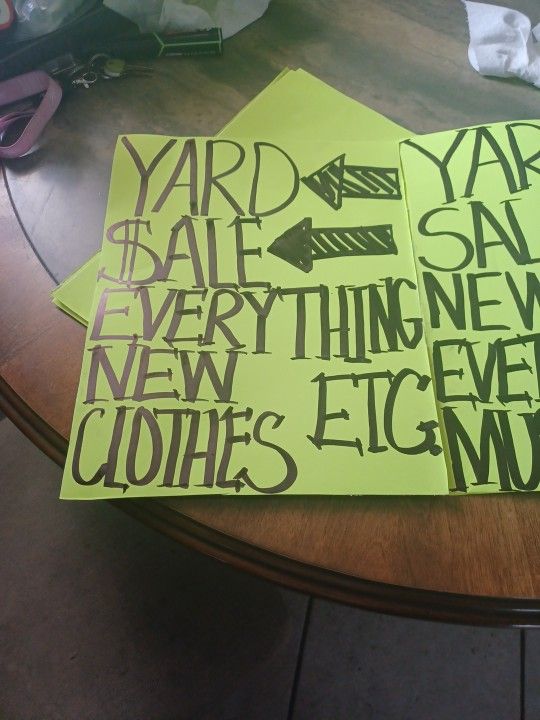 YARD
$ALE
EVERYTHING
NEW
ETC.
CLOTHES
YAR
SAL
NEW
EVE
MU